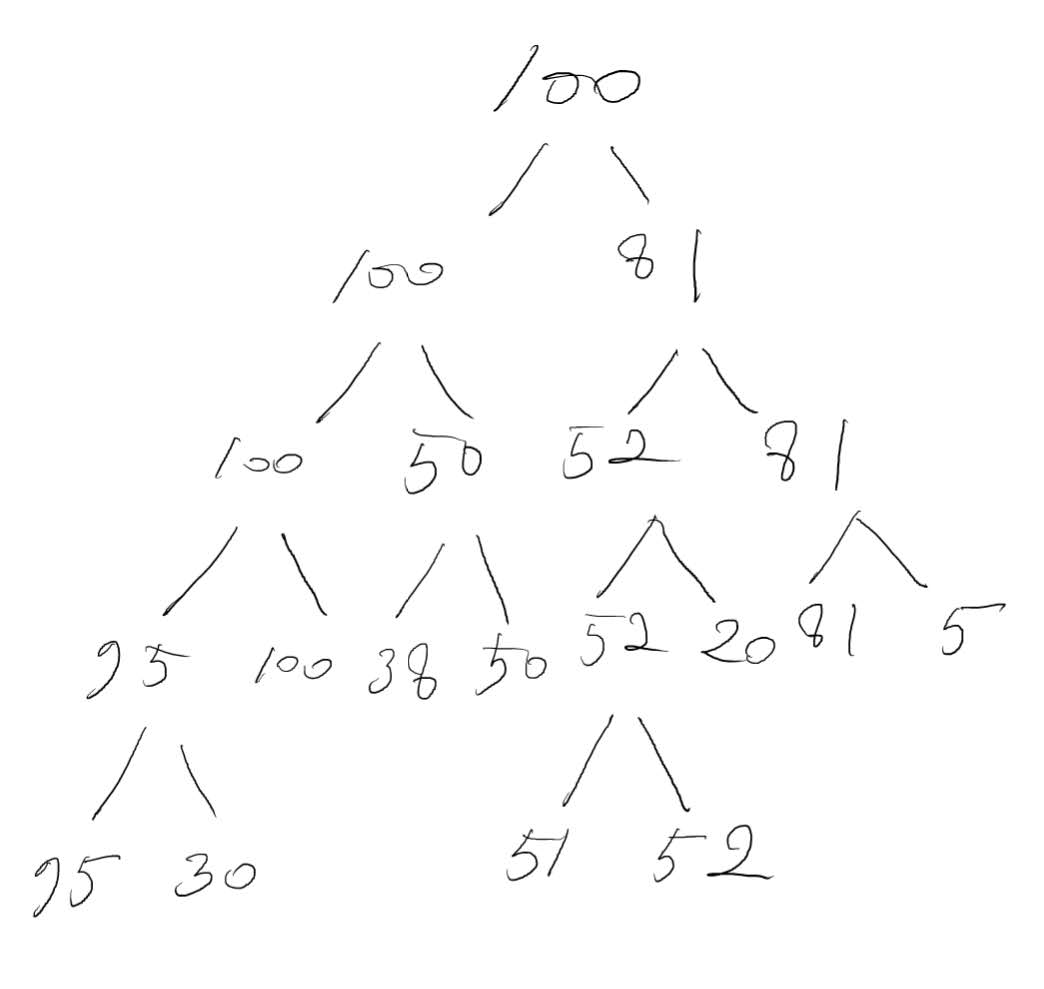 100
100 81
100 50 52 81
95 100 38 50 52 20 81 5
95 30 51 52